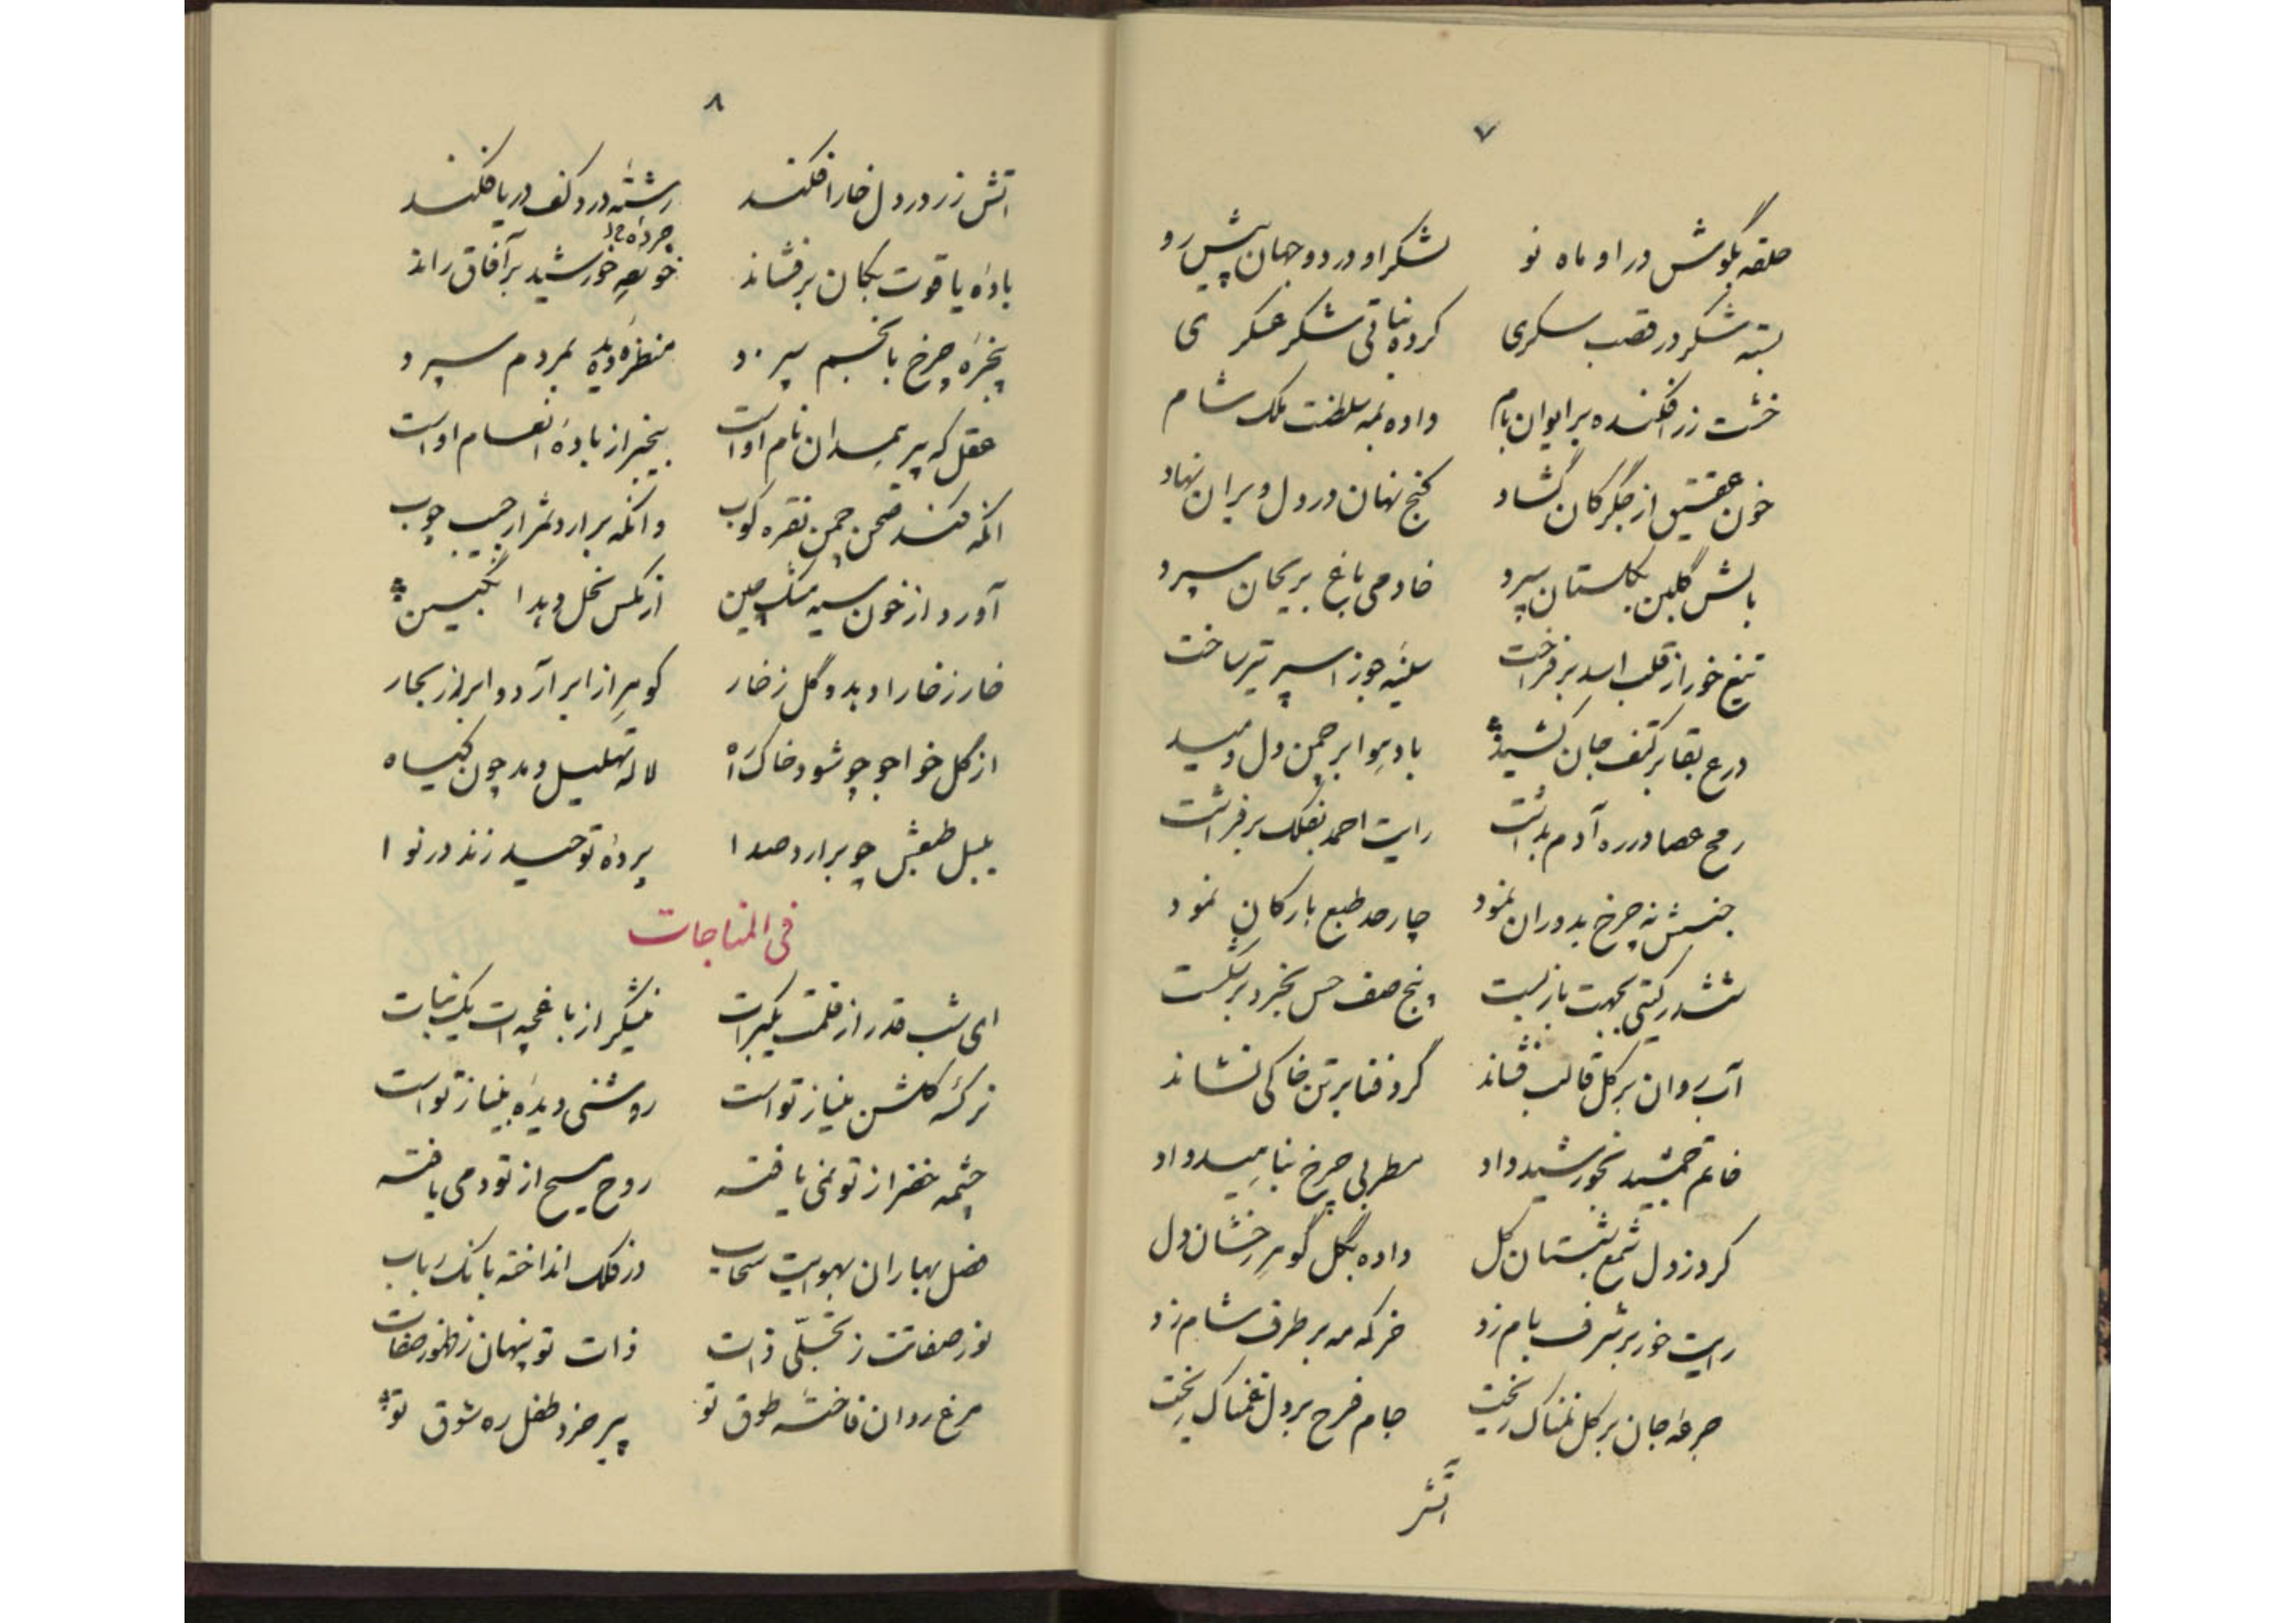 ۷
حلقه بگوش در او ماه نو لشکر او در دو جهان پیش رو
بسته شکر در قصب سکری کرده نباتی شکر عسکری
خشت زر افکنده بر ایوان بام داده بمه سلطنت ملک شام
خون عقیق از جگر کان گشاد گنج نهان در دل ویران نهاد
بالش گلبن بگلستان سپرد خادمی باغ بریحان سپرد
تیغ خور از قلب اسد برفراخت سینه جوزا سپر تیر ساخت
درع بقا بر کتف جان کشید باد هوا بر چمن دل دمید
رمح عصا در ره آدم بداشت رایت احمد بفلک برفراشت
جنبش نه چرخ بدوران نمود چار حد طبع بارکان نمود
ششدر گیتی بجهت باز بست پنج صف حس بخرد برشکست
آب روان بر گل قالب فشاند گرد فنا بر تن خاکی نشاند
خاتم جمشید بخورشید داد مطربی چرخ بناهید داد
کرد ز دل شمع شبستان گل داده بگل گوهر رخشان دل
رایت خور بر شرف بام زد خرگه مه بر طرف شام زد
جرعه جان بر گل نمناک ریخت جام فرح بر دل غمناک ریخت
آتش
۸
آتش زر در دل خارا فکند رشته در در کف دریا فکند
باده یاقوت بکان برفشاند خور بر آفاق راند
پنجره چرخ بانجم سپرد منظره دیده بمردم سپرد
عقل که پیر همدان نام اوست بیخبر از باده انعام اوست
آنکه کند صحن چمن نقره کوب وانکه برارد ثمر از جیب چوب
آورد از خون سیه مشک چین از مگس نحل دهد انگبین
خار ز خارا دهد و گل ز خار گوهر از ابر آرد و ابر از بحار
از گل خواجو چو شود خاک راه لاله تهلیل دمد چون گیاه
بلبل طبعش چو برارد صدا پرده توحید زند در نوا
فی المناجات
ای شب قدر از فلکت یک برات نیشکر از باغچه ات یک نبات
نرگسه گلشن مینا ز تو است روشنی دیده بینا ز تو است
چشمه خضر از تو نمی یافته روح مسیح از تو دمی یافته
فصل بهاران بهوایت سحاب در فلک انداخته بانگ رباب
نور صفاتت ز تجلی ذات ذات تو پنهان ز ظهور صفات
مرغ روان فاخته طوق تو پیر خرد طفل ره شوق تو